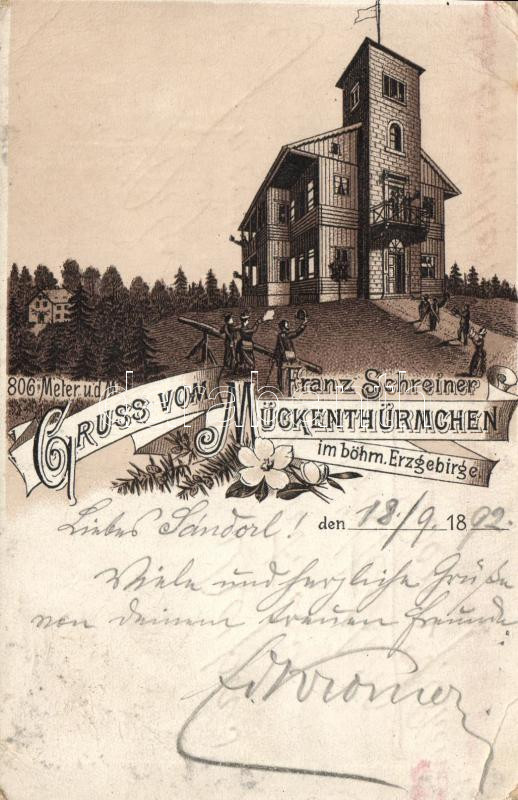 806 Meter u.d.M.
Franz Schreiner
GRUSS VOM MÜCKENTHÜRMCHEN
im böhm. Erzgebirge
Liebes Sandorl! den 18./9. 1892.
Viele und herzliche Grüße
von deinem treuen Freunde
Ed Kromer